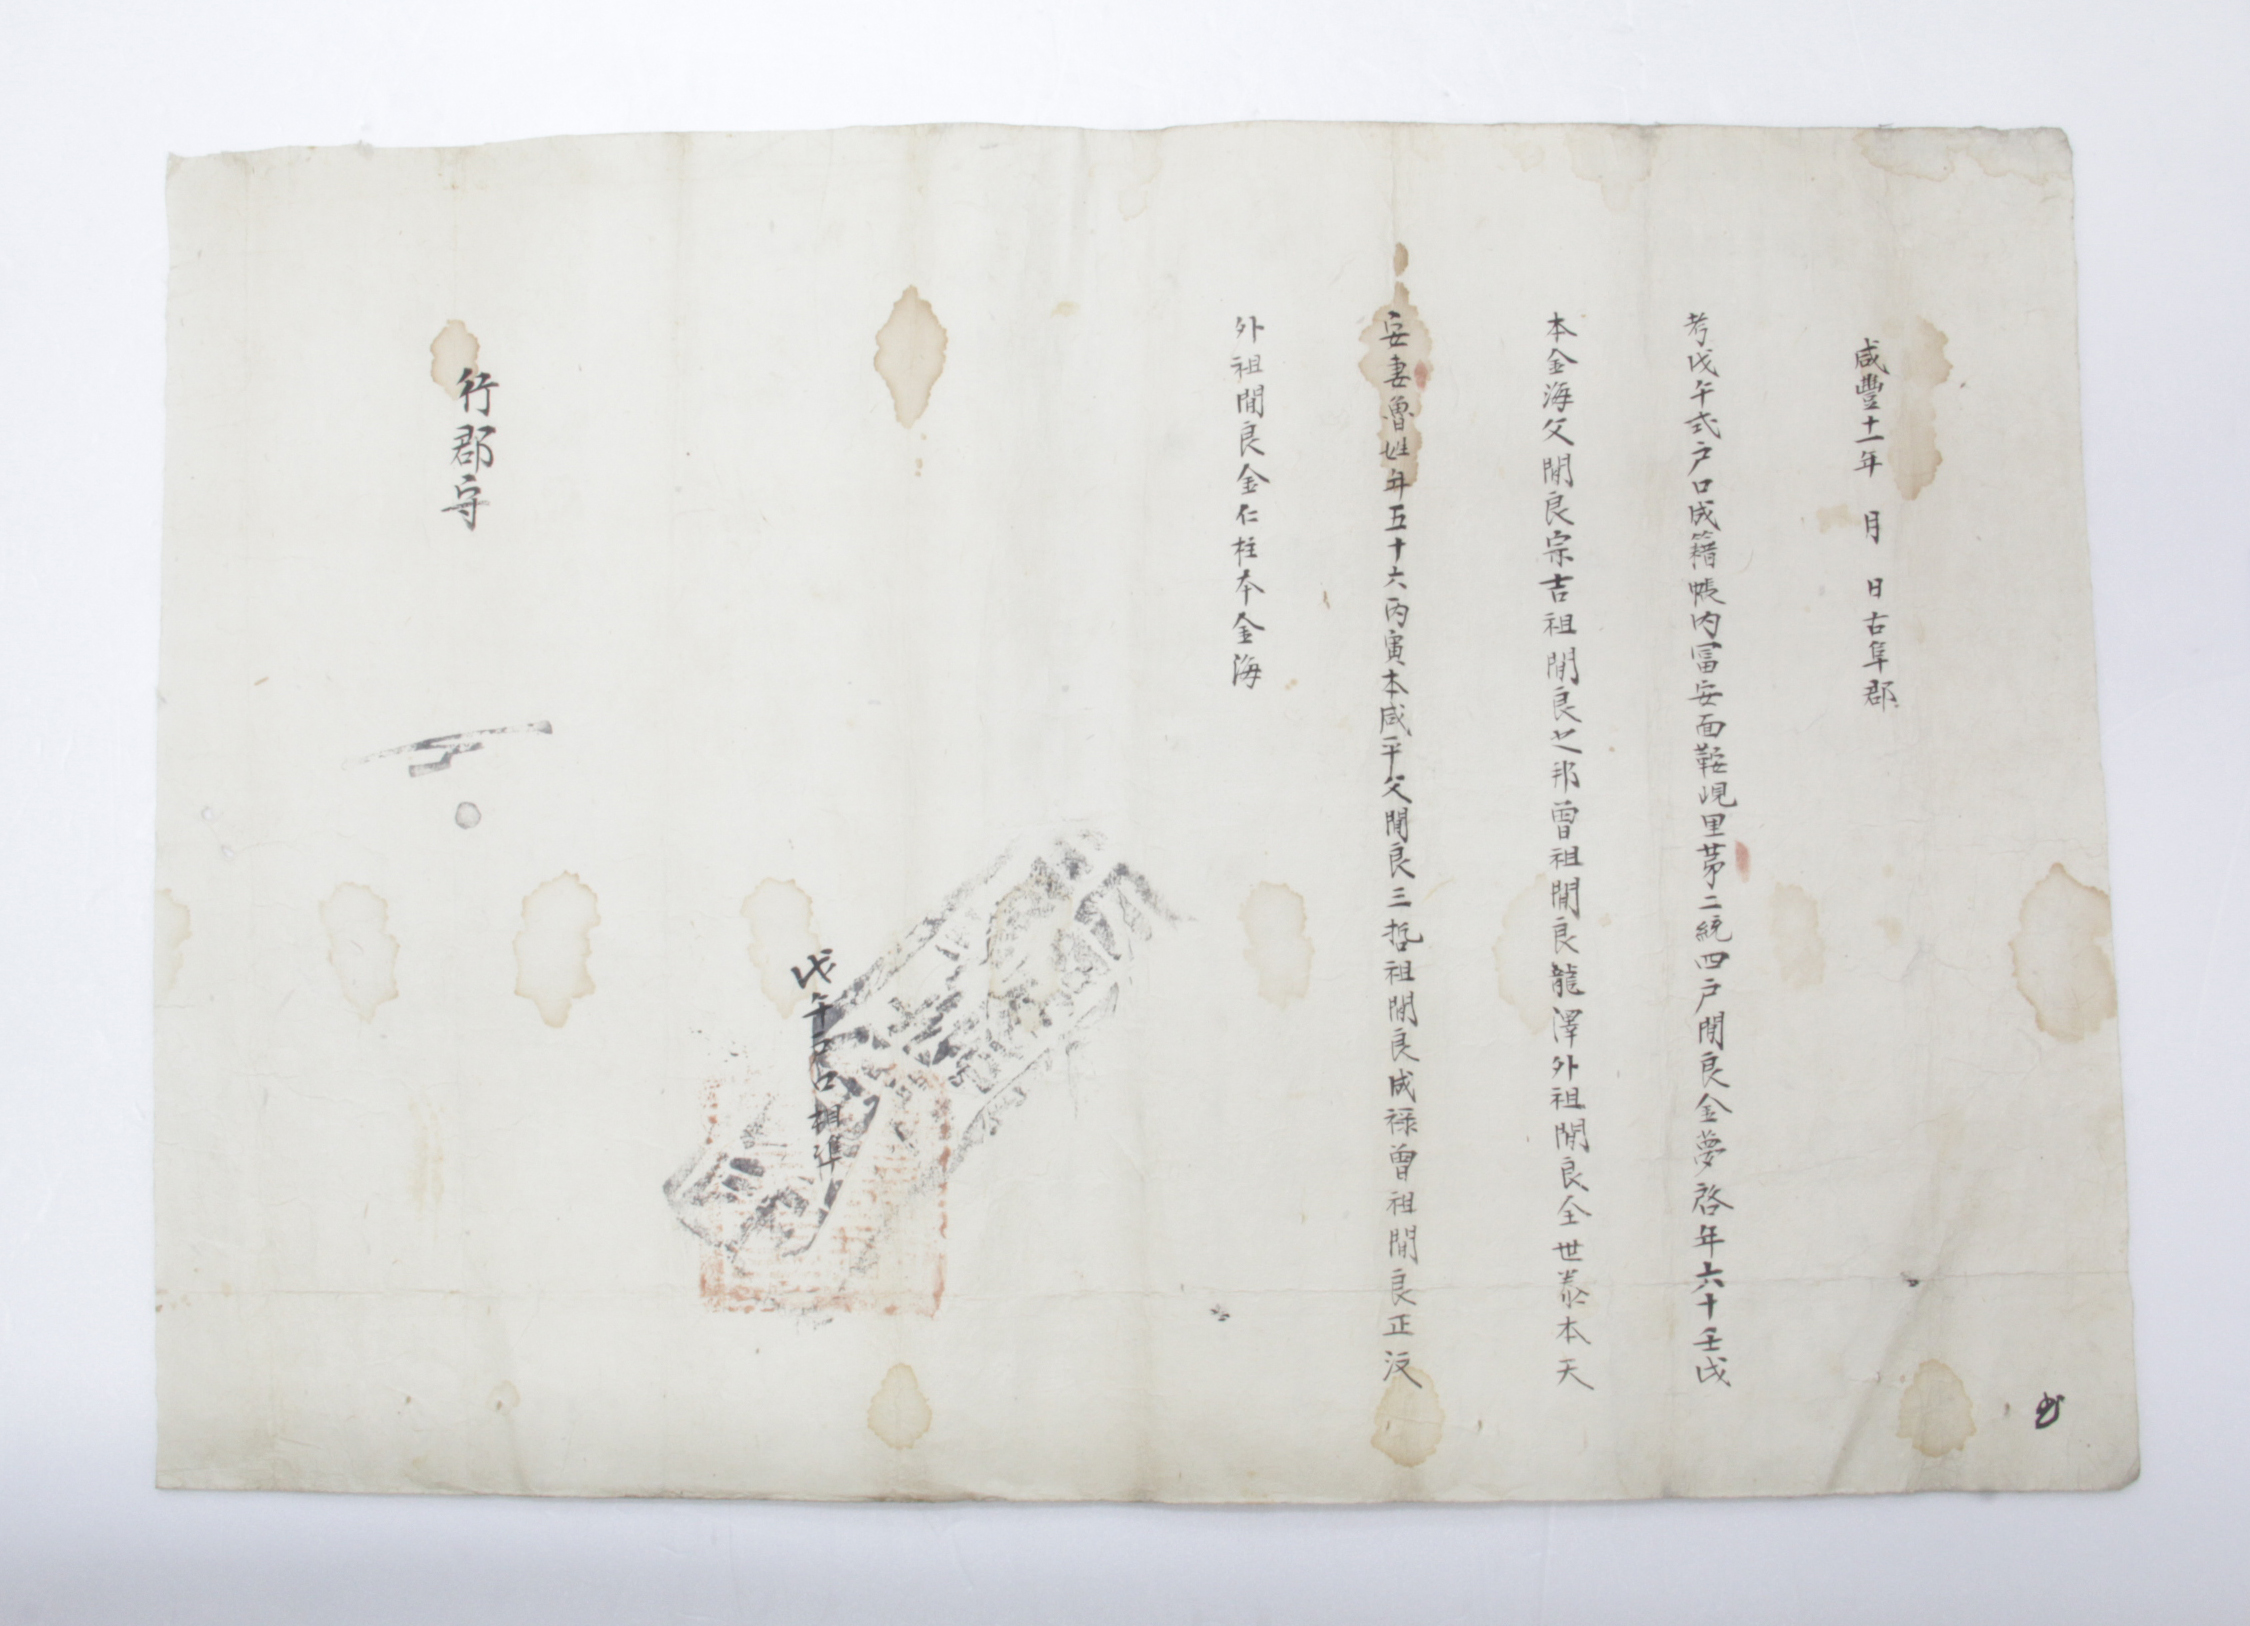 咸豐十一年 月 日古阜郡
考戊午式戶口成籍帳內富安面鞍峴里第二統四戶閒良金夢啓年六十壬戌
本金海父閒良宗吉祖閒良之邦曾祖閒良龍澤外祖閒良全世泰本天
安妻魯姓年五十六丙寅本咸平父閒良三哲祖閒良成祿曾祖閒良正汲
外祖閒良金仁柱本金海
戊午戶口相準
行郡守